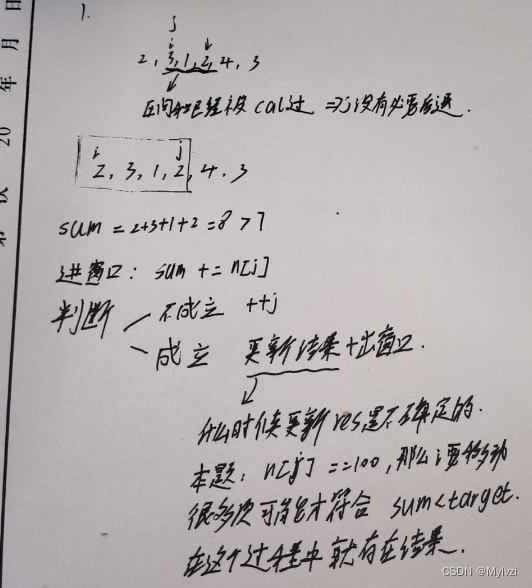 1.
j
i
2, 3, 1, 2, 4, 3
区间和已经被 cal过 ⇒ j没有必要后退.
i j
2, 3, 1, 2, 4, 3
sum = 2+3+1+2 = 8 > 7
进窗口: sum += n[j]
判断 不成立 ++j
成立 更新结果+出窗口.
什么时候更新res是不确定的.
本题: n[j] == 100, 那么i要移动
很多次可能才符合 sum < target.
在这个过程中就存在结果.
年 月 日
20
CSDN @Mylvzi